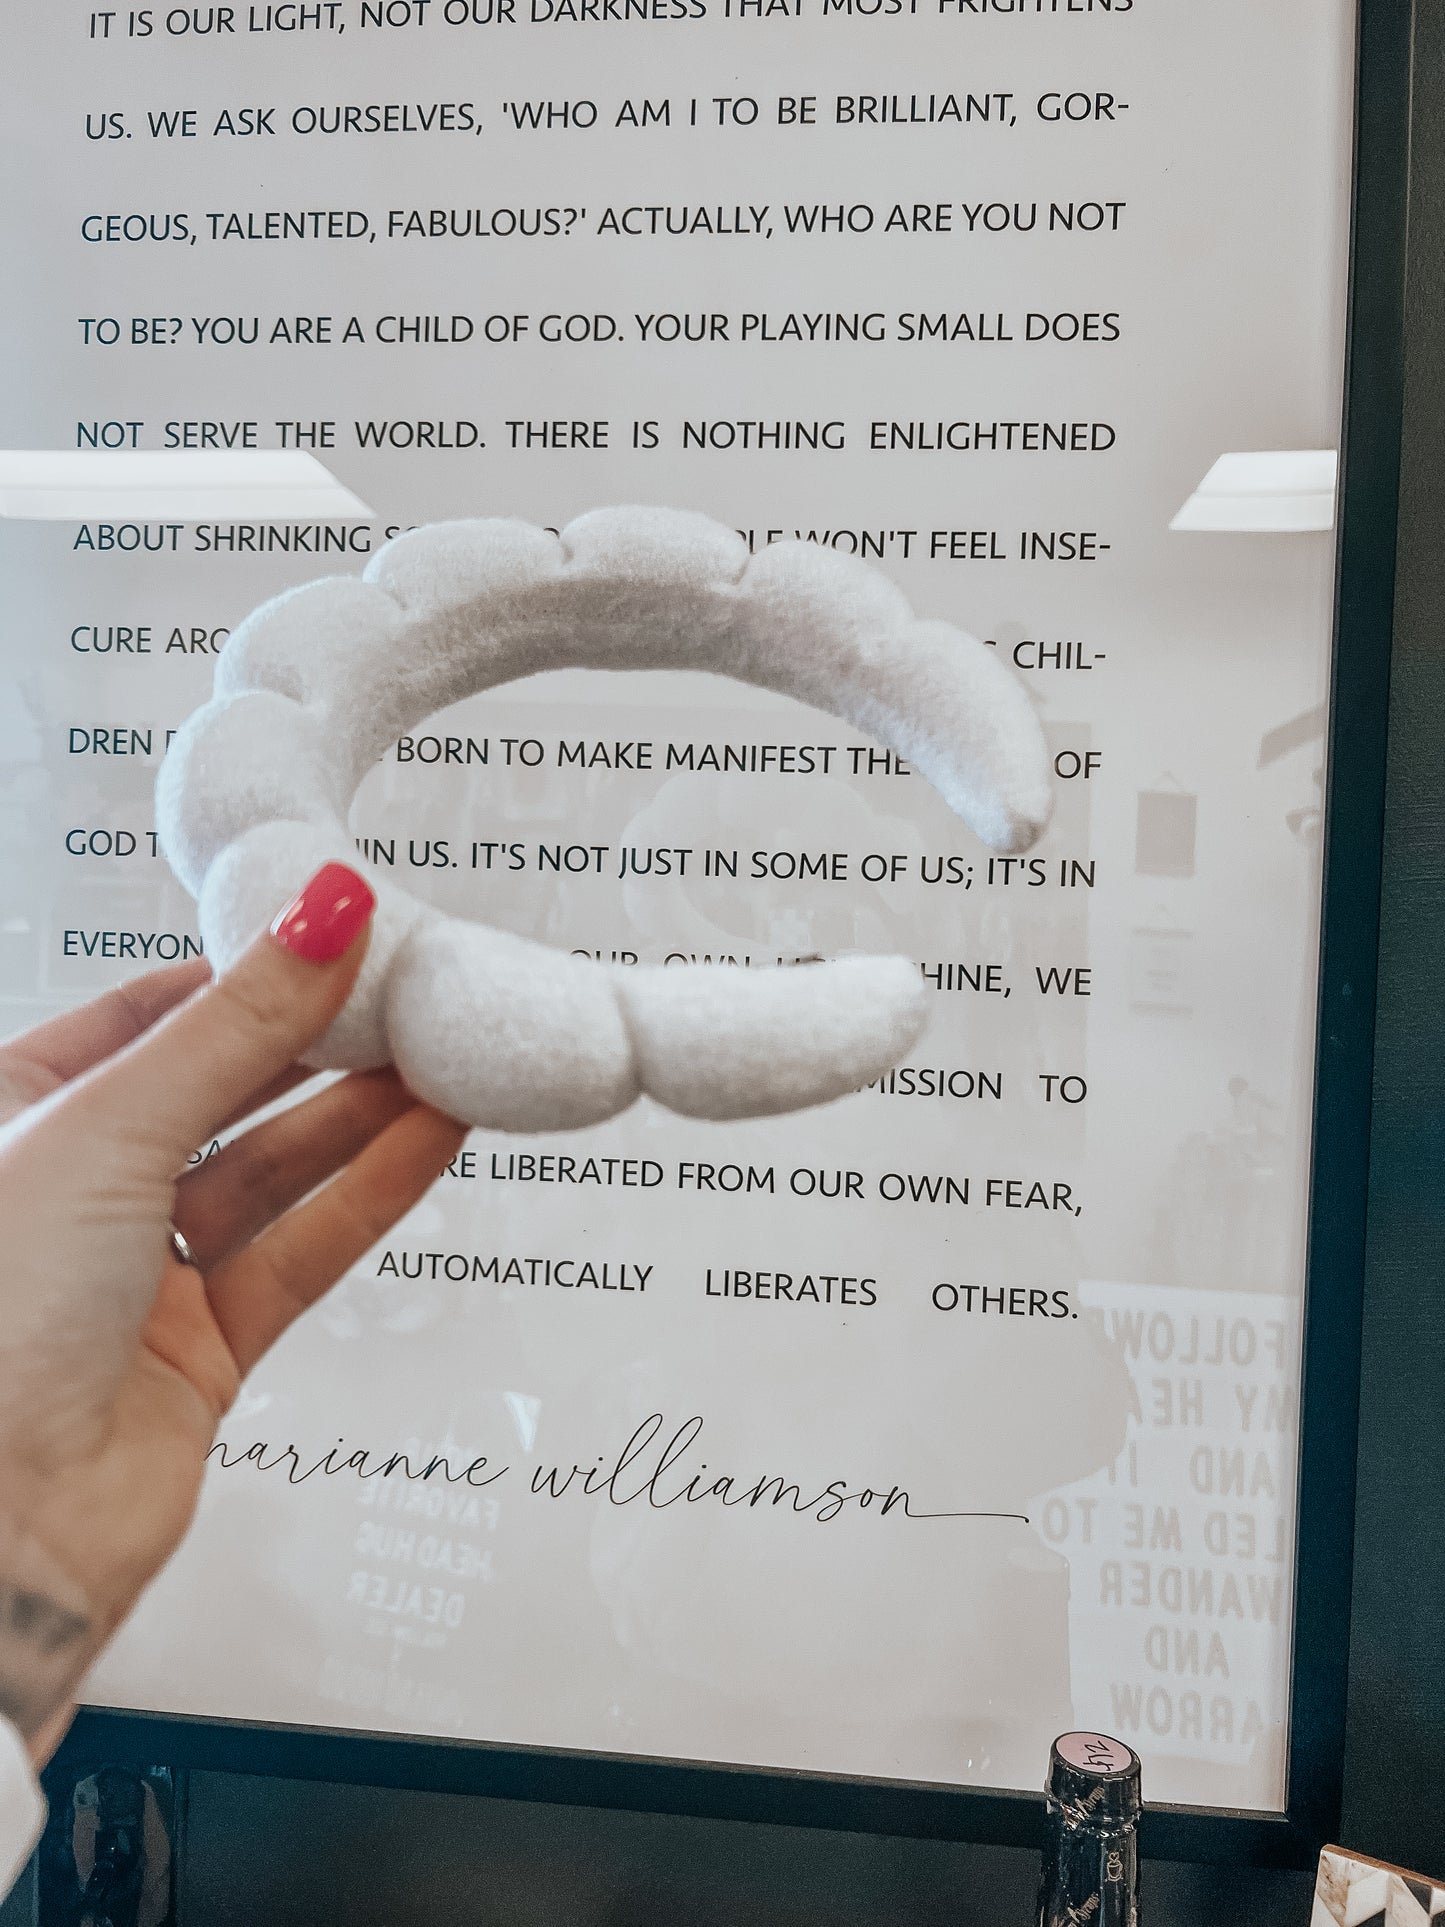 IT IS OUR LIGHT, NOT OUR DARKNESS THAT MOST FRIGHTENS
US. WE ASK OURSELVES, 'WHO AM I TO BE BRILLIANT, GOR-
GEOUS, TALENTED, FABULOUS?' ACTUALLY, WHO ARE YOU NOT
TO BE? YOU ARE A CHILD OF GOD. YOUR PLAYING SMALL DOES
NOT SERVE THE WORLD. THERE IS NOTHING ENLIGHTENED
ABOUT SHRINKING WON'T FEEL INSE-
CURE CHIL-
DREN BORN TO MAKE MANIFEST THE OF
GOD US. IT'S NOT JUST IN SOME OF US; IT'S IN
OUR OWN WE
TO
LIBERATED FROM OUR OWN FEAR,
AUTOMATICALLY LIBERATES OTHERS.
marianne williamson
FAVORITE
HEAD HUG
DEALER
FOLLOW
MY
AND
LED ME TO
WANDER
AND
ARROW